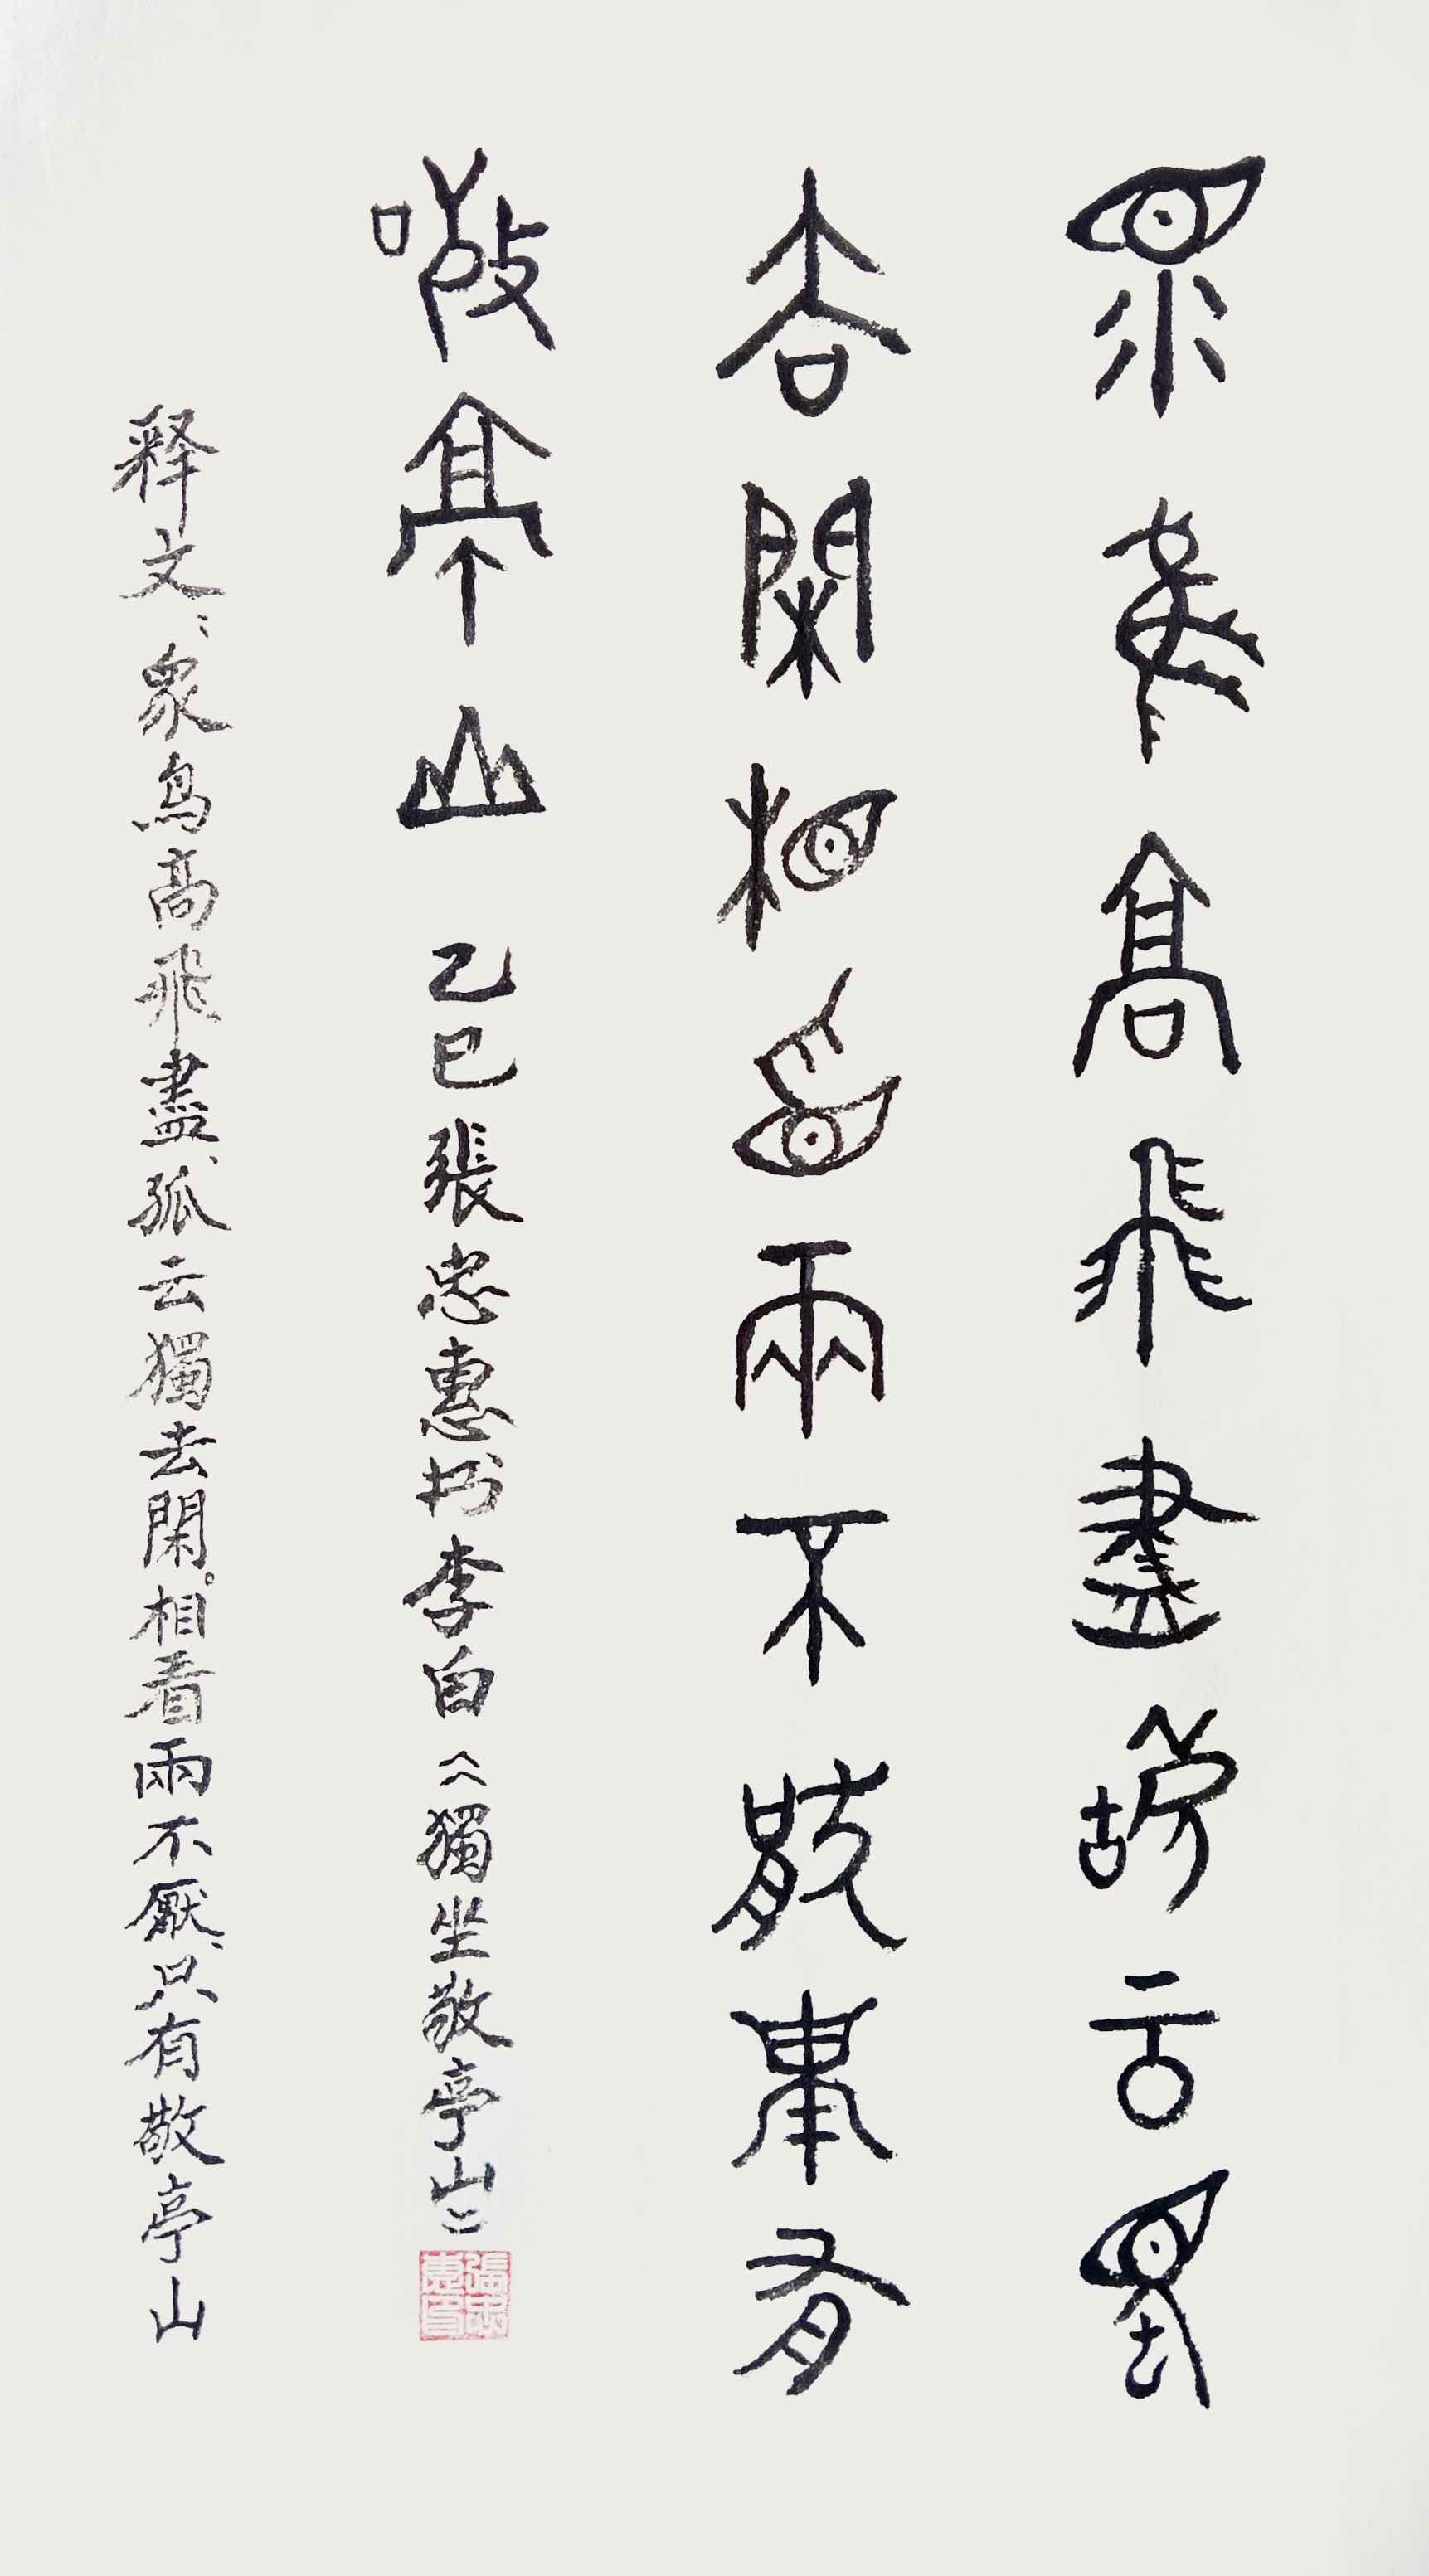 眾鳥高飛盡孤云獨
去閑相看兩不厭唯有
敬亭山 乙巳張忠惠抄李白《獨坐敬亭山》
張忠惠印
释文：眾鳥高飛盡，孤云獨去閑。相看兩不厭，只有敬亭山